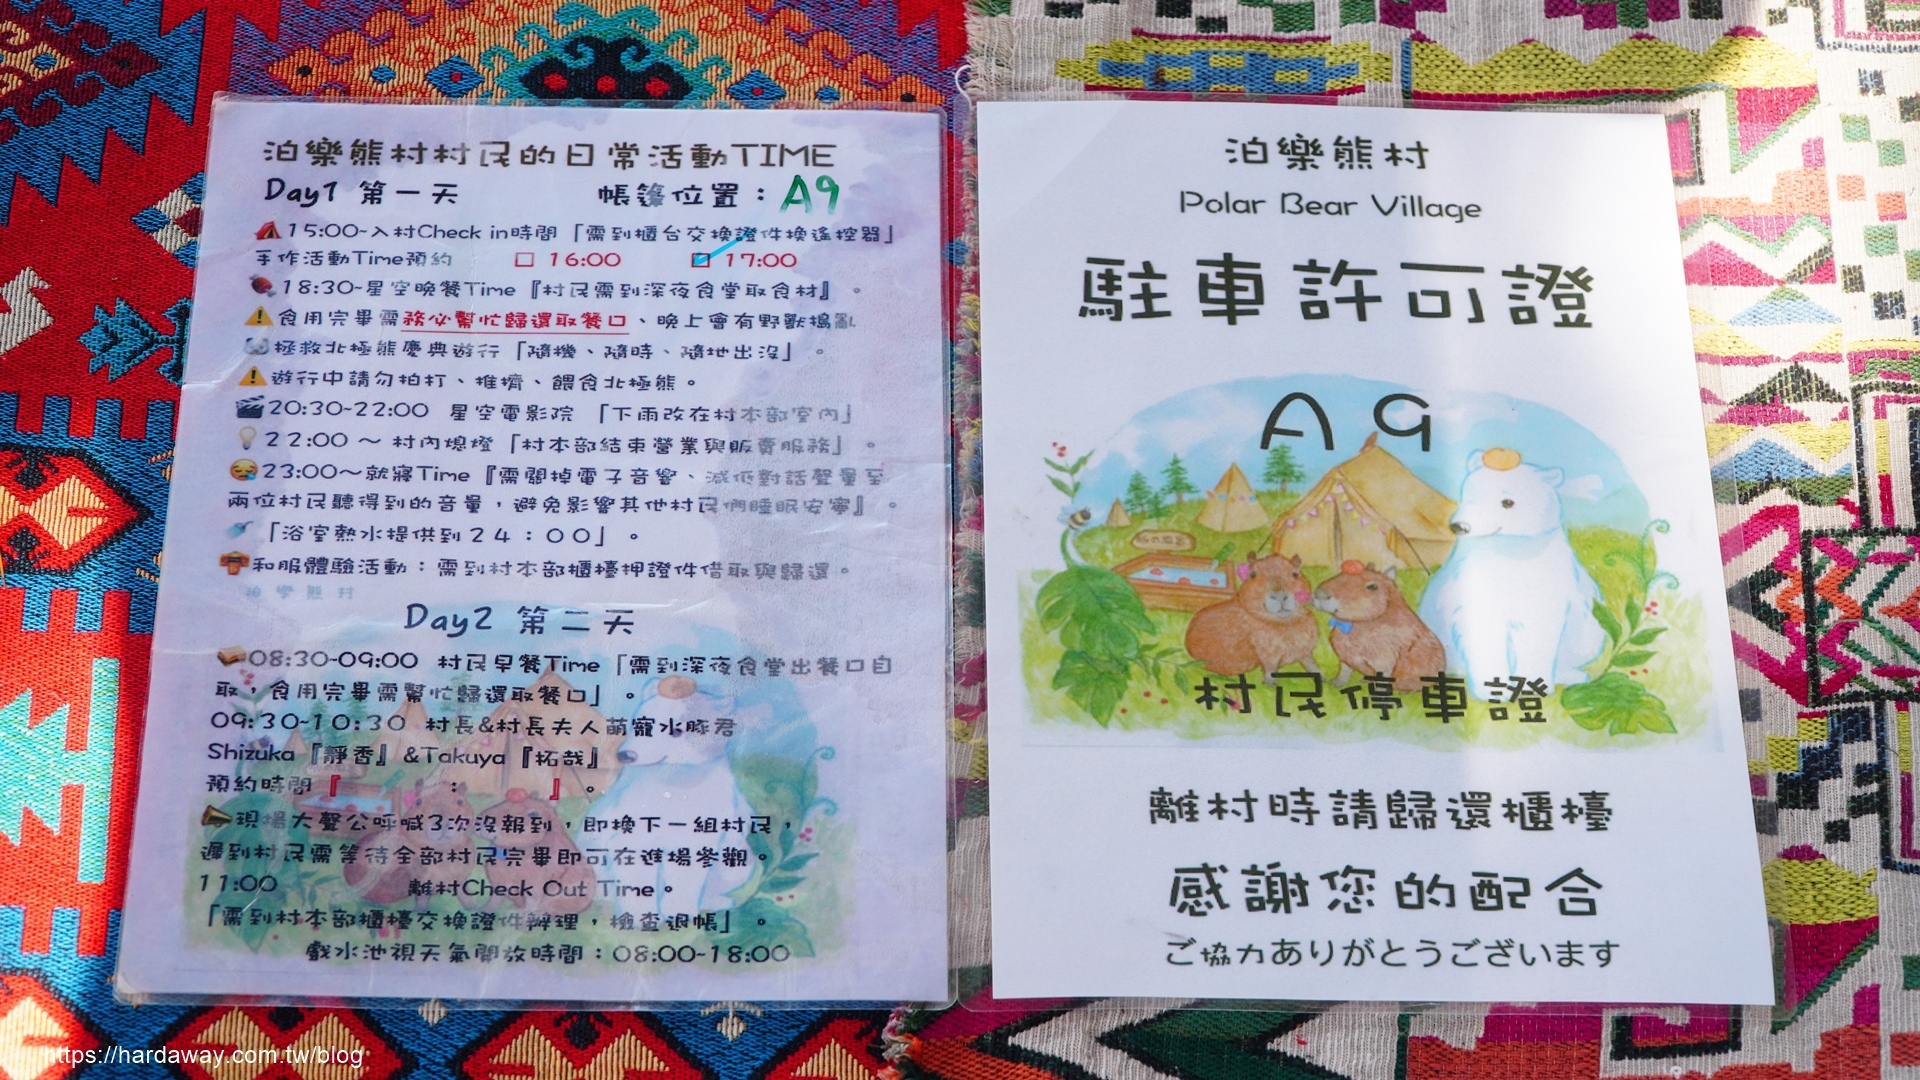 泊樂熊村村民的日常活動TIME
Day1 第一天 帳篷位置：A9
15:00~入村Check in時間「需到櫃台交換證件換遙控器」
手作活動Time預約 □ 16:00 ☑ 17:00
18:30~星空晚餐Time『村民需到深夜食堂取食材』。
食用完畢需務必幫忙歸還取餐口、晚上會有野獸搗亂
拯救北極熊慶典遊行「隨機、隨時、隨地出沒」。
遊行中請勿拍打、推擠、餵食北極熊。
20:30~22:00 星空電影院 「下雨改在村本部室內」
22:00 ～ 村內熄燈「村本部結束營業與販賣服務」。
23:00～就寢Time『需關掉電子音響、減低對話聲量至
兩位村民聽得到的音量，避免影響其他村民們睡眠安寧』。
「浴室熱水提供到２４：００」。
和服體驗活動：需到村本部櫃檯押證件借取與歸還。
泊樂熊村
Day2 第二天
08:30-09:00 村民早餐Time「需到深夜食堂出餐口自
取，食用完畢需幫忙歸還取餐口」。
09:30~10:30 村長&村長夫人萌寵水豚君
Shizuka『靜香』&Takuya『拓哉』
預約時間『 : 』。
現場大聲公呼喊3次沒報到，即換下一組村民，
遲到村民需等待全部村民完畢即可在進場參觀。
11:00 離村Check Out Time。
「需到村本部櫃檯交換證件辦理，檢查退帳」。
戲水池視天氣開放時間：08:00~18:00
泊樂熊村
Polar Bear Village
駐車許可證
A9
村民停車證
離村時請歸還櫃檯
感謝您的配合
ご協力ありがとうございます
https://hardaway.com.tw/blog